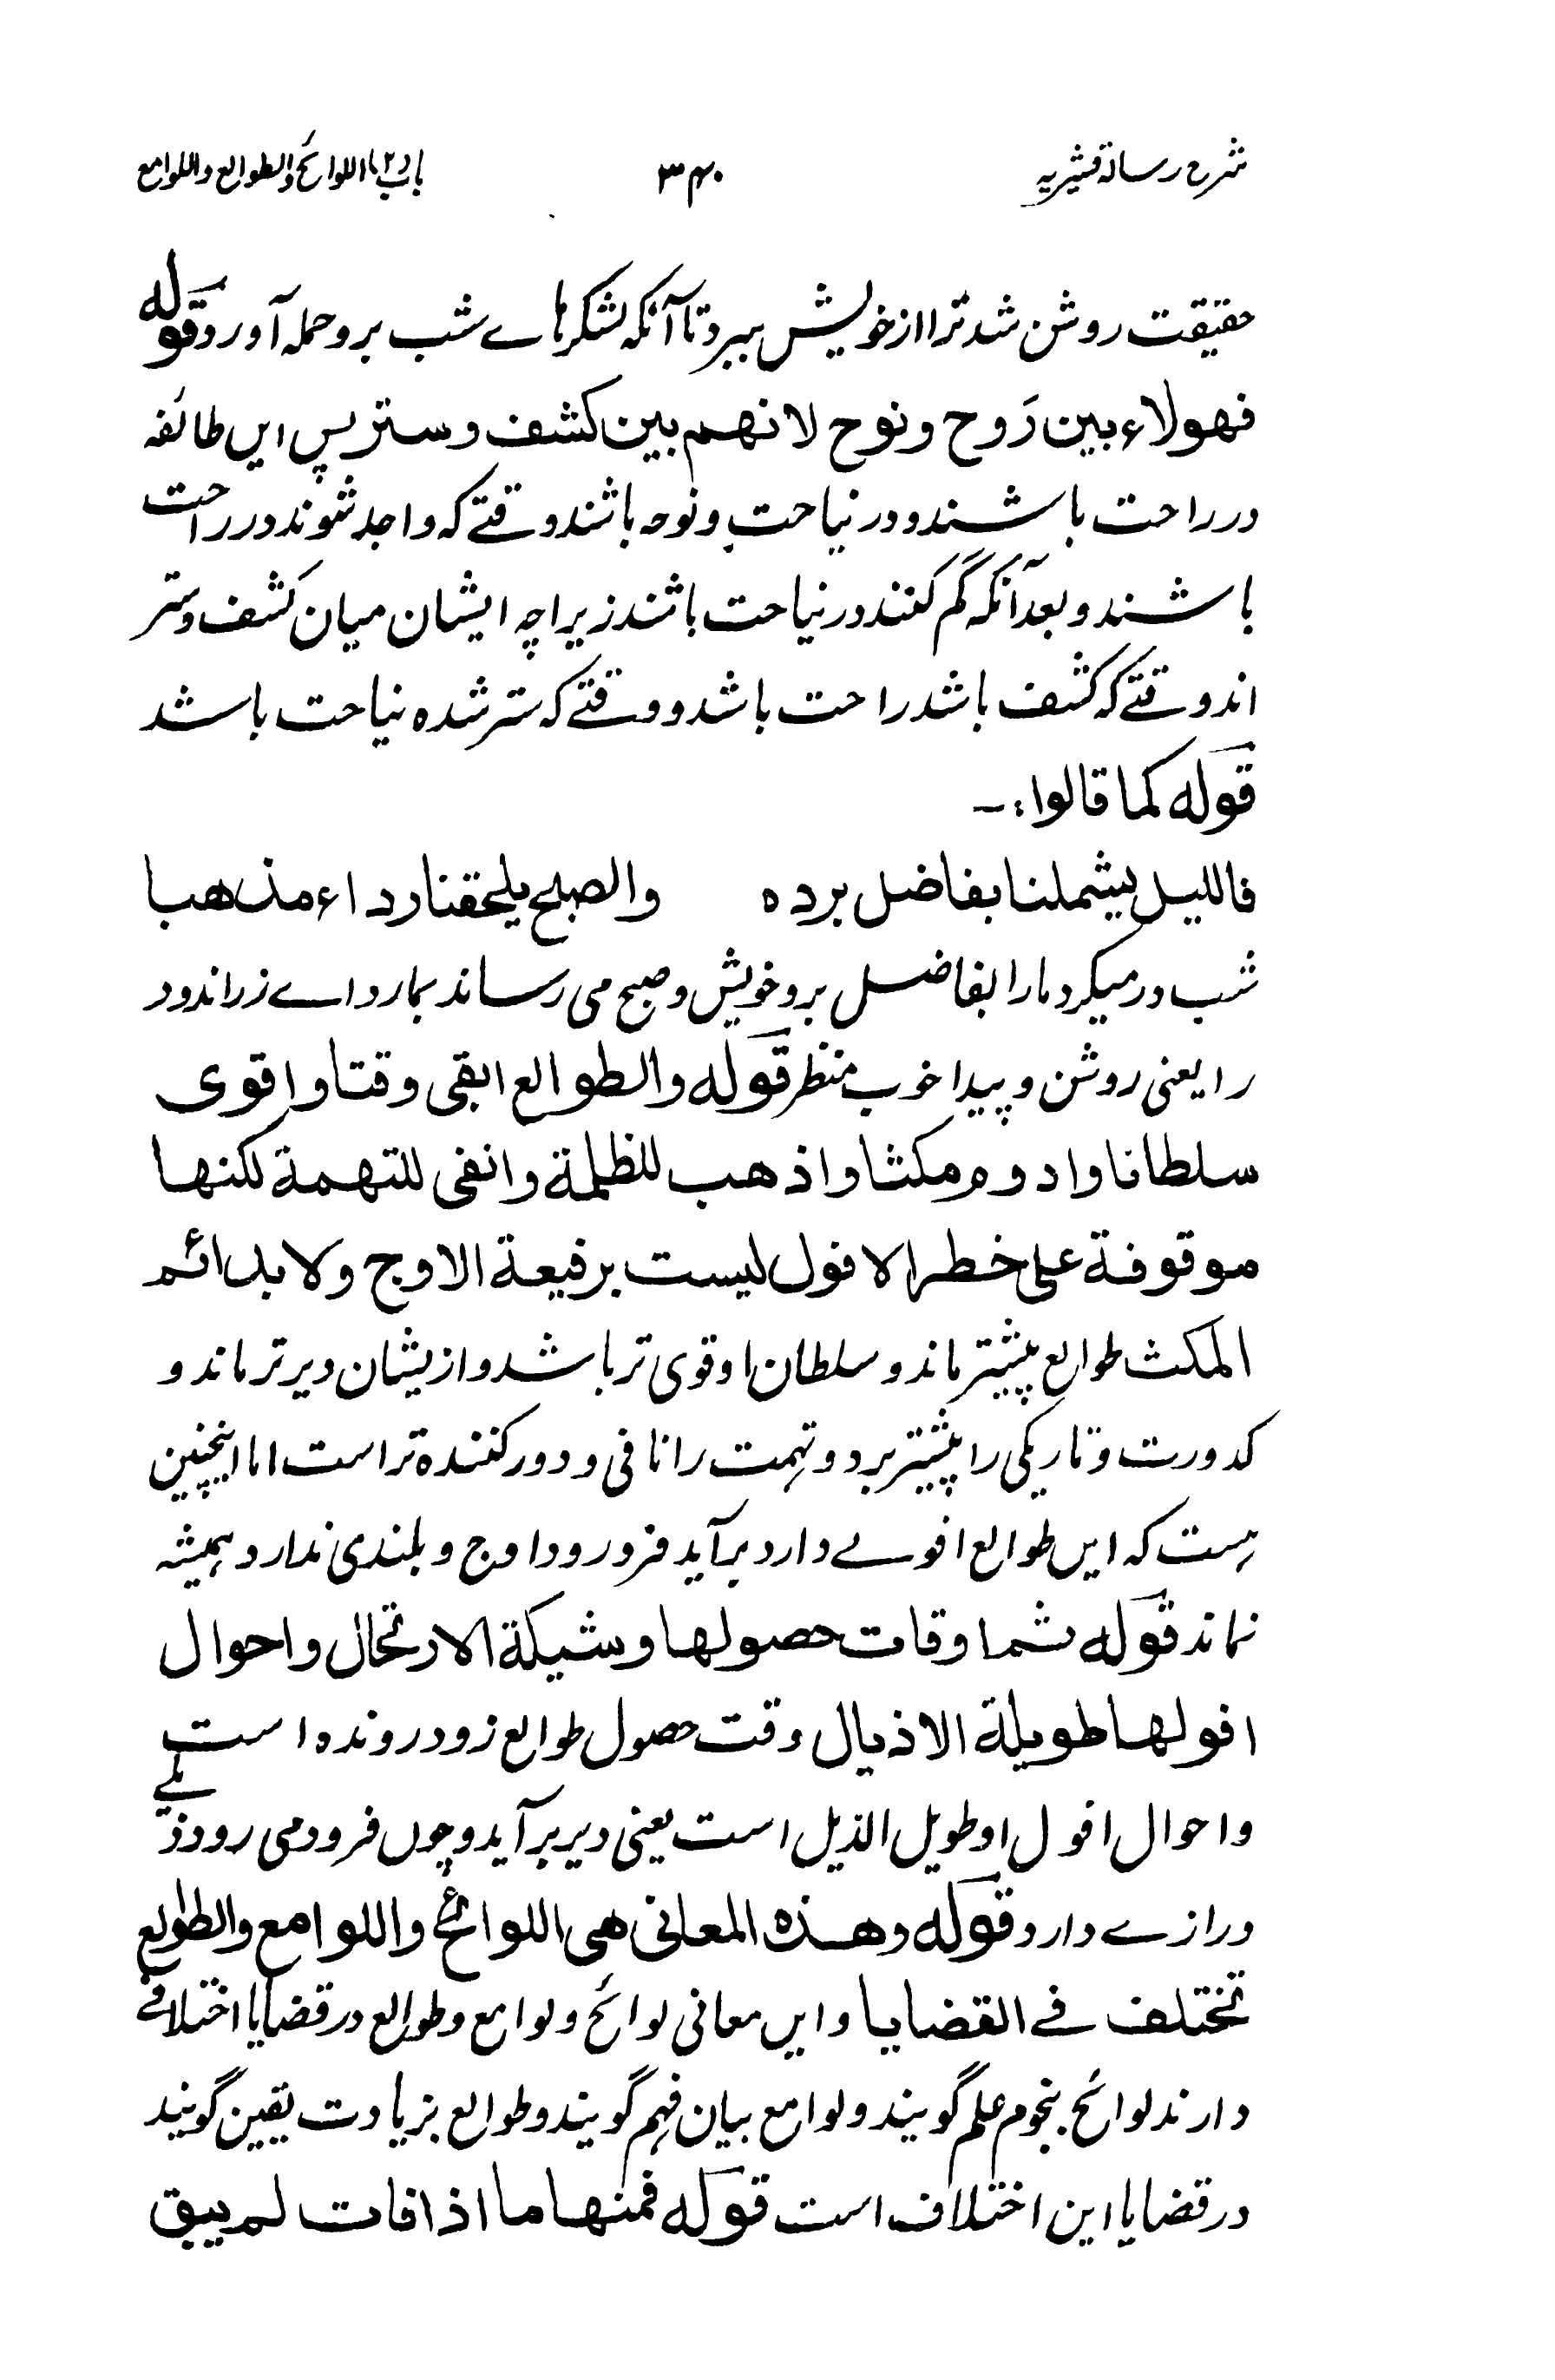 شرح رسالۀ قشیریه ۳۴۰ باب (۲) اللوائح والطوالع واللوامع
حقیقت روشن شد ترا از خویش ببرد تا آنکه لشکرهاے شب برو حمله آورد قوله
فهولاء بین رَوح ونوح لانهم بین کشف وستر پس این طائفه
در راحت باشند و در نیاحت و نوحه باشند وقتے که واجد شوند در راحت
باشند و بعد آنکه گم کنند در نیاحت باشند زیراچه ایشان میان کشف و ستر
اند وقتے که کشف باشد راحت باشد و وقتے که ستر شده نیاحت باشد
قوله کما قالوا :-
فاللیل یشملنا بفاضل برده والصبح یلحقنا رداء مذهبا
شب در میگرد مارا بفاضل برد خویش و صبح می رساند بمارداے زراندود
را یعنی روشن و پیدا خوب منظر قوله والطوالع ابقی وقتا واقوی
سلطانا وادوم مکثا واذهب للظلمة وانفی للتهمة لکنها
موقوفة علی خطر الافول لیست برفیعة الاوج ولا بدائم
المکث طوالع بیشتر ماند و سلطان او قوی تر باشد و از یشان دیر تر ماند و
کدورت و تاریکی را بیشتر برد و تهمت را نافی و دور کننده تر است اما اینچنین
هست که این طوالع افولے دارد برآید فرو رود اوج و بلندی ندارد همیشه
نماند قوله ثم اوقات حصولها وشیکة الارتحال واحوال
افولها طویلة الاذیال وقت حصول طوالع زود رونده است
واحوال افول او طویل الذیل است یعنی دیر برآید و چوں فرود می رود ذیلے
درازے دارد قوله وهذه المعانی هی اللوائح واللوامع والطوالع
تختلف فے القضایا و این معانی لوائح و لوامع و طوالع در قضایا اختلافے
دارند لوائح بنجوم علم گویند و لوامع بیان فهم گویند و طوالع بزیادت یقین گویند
در قضایا این اختلاف است قوله فمنها ما اذا فات لم یبق